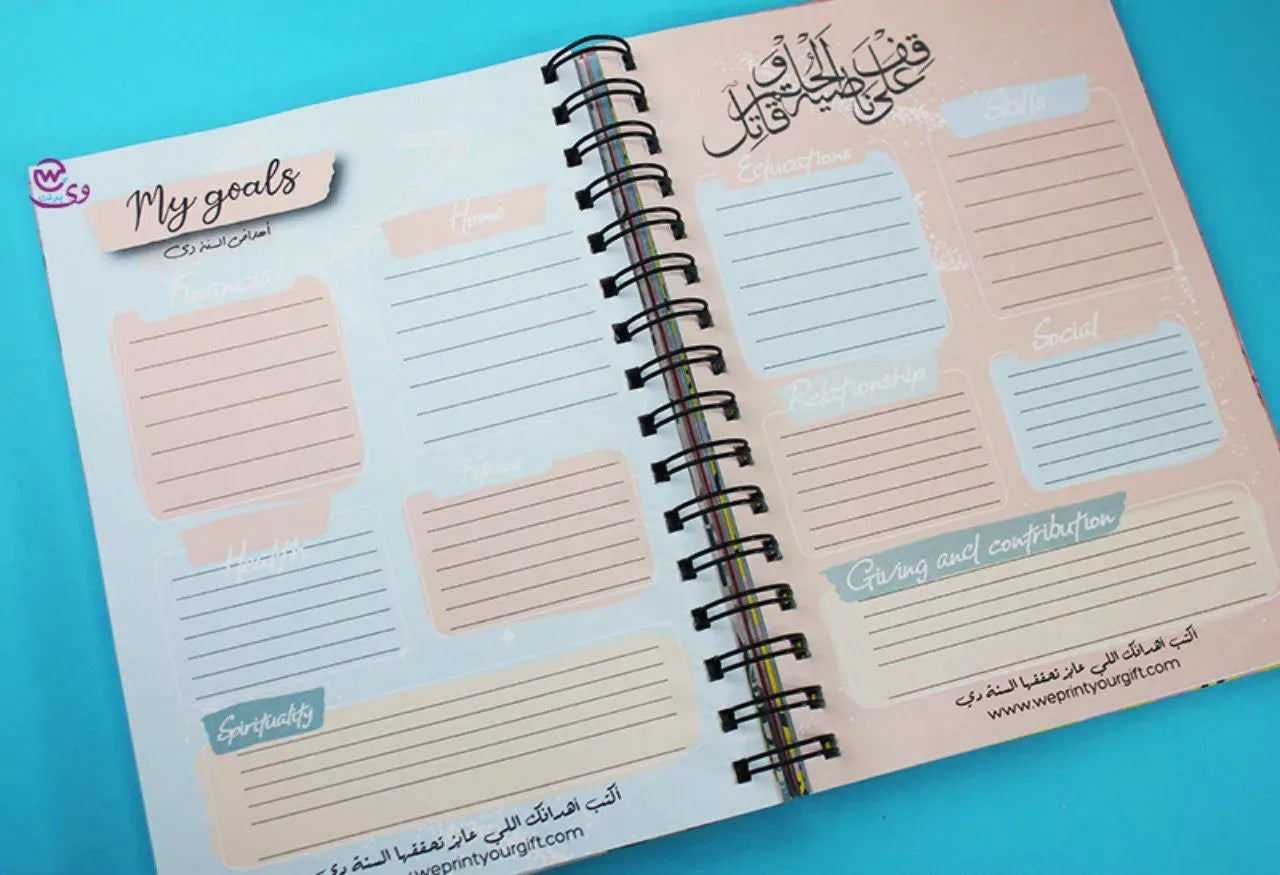 وي
برنت
My goals
أهدافى السنة دي
Financial
Home
Health
Spirituality
أكتب أهدافك اللي عايز تحققها السنة دي
weprintyourgift.com
قف
على ناصية الحلم و
قاتل
Educations
Skills
Relationship
Social
Giving and contribution
أكتب أهدافك اللي عايز تحققها السنة دي
www.weprintyourgift.com